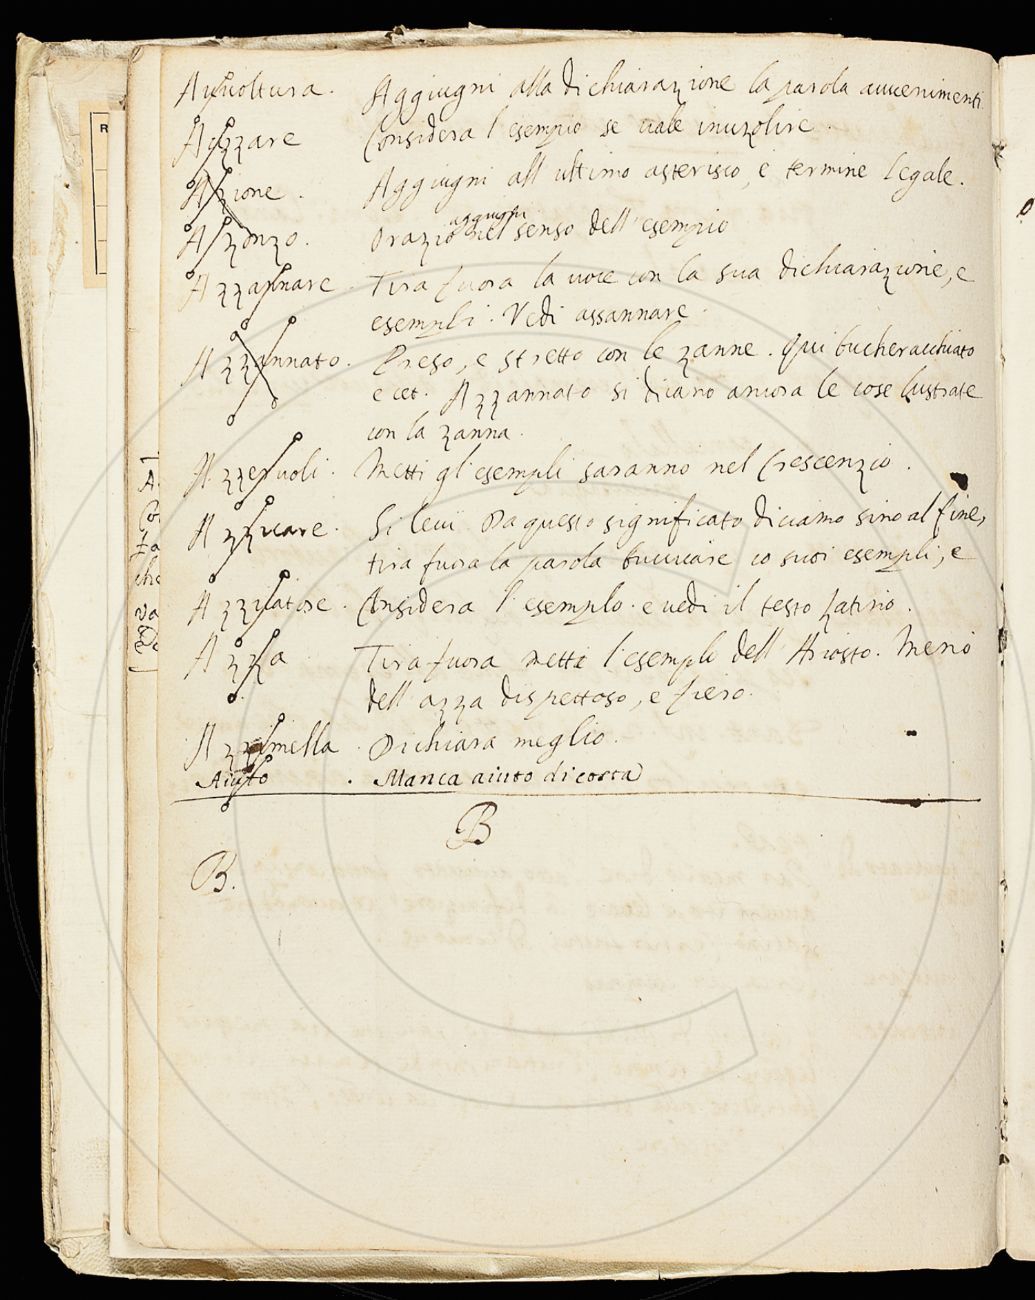 Auuoltura. Aggiugni alla dichiarazione la parola auuenimenti
Aizzare Considera l'esempio se uale inuzolire.
Azione. Aggiugni all'ultimo asterisco, è termine legale.
aggiugni
A zonzo. Orazio nel senso dell'esempio
Azzannare. Tira fuora la uoce con la sua dichiarazione, e
esempli. Vedi assannare.
Azzannato. Preso, e stretto con le zanne. Qui bucheracchiato
e cet. Azzannato si dicano ancora le cose lustrate
con la zanna.
Azzeruoli. Metti gl'esempli saranno nel Crescenzio.
Azzicare. Si leui Da questo significato diciamo sino al fine,
tira fuora la parola bucicare co suoi esempli, e
Azzicatore. Considera l'esemplo. e uedi il testo Latino.
Azza Tira fuora metti l'esemplo dell'Ariosto. Menò
dell'azza dispettoso, e fiero.
Azzimella. Dichiara meglio.
Aiuto. Manca aiuto di costa
B
B.